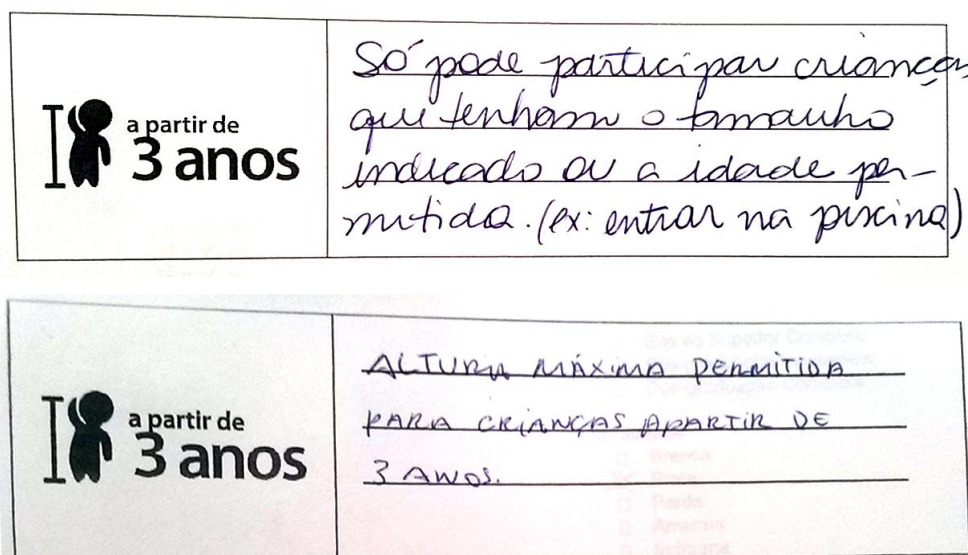 a partir de
3 anos
Só pode participar crianças
qui tenham o tamanho
indicado ou a idade per-
mitida. (ex: entrar na piscina)
a partir de
3 anos
ALTURA MÁXIMA PERMITIDA
PARA CRIANÇAS APARTIR DE
3 ANOS.
Branca
Preta
Parda
Amarela
Indígena